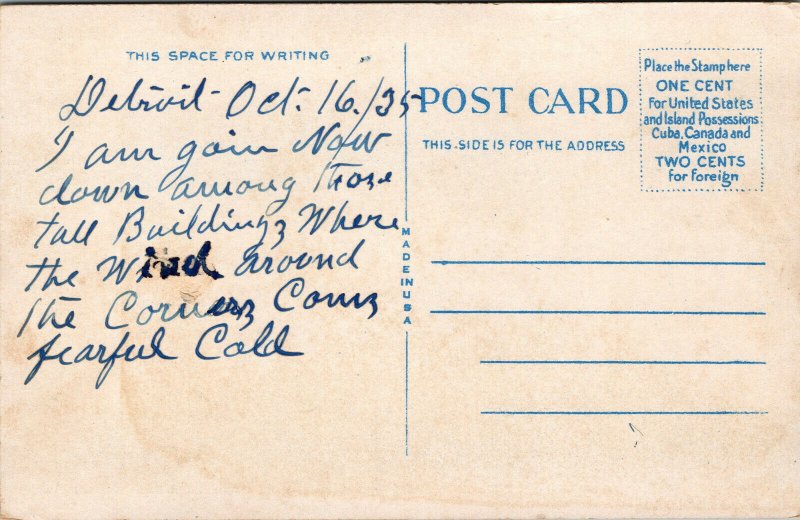 THIS SPACE FOR WRITING
Detroit Oct. 16./35
I am goin Now
down among those
tall Buildings Where
the Wind around
the Corners Coms
fearful Cold
MADE IN USA
POST CARD
THIS SIDE IS FOR THE ADDRESS
Place the Stamp here
ONE CENT
For United States
and Island Possessions
Cuba, Canada and
Mexico
TWO CENTS
for Foreign